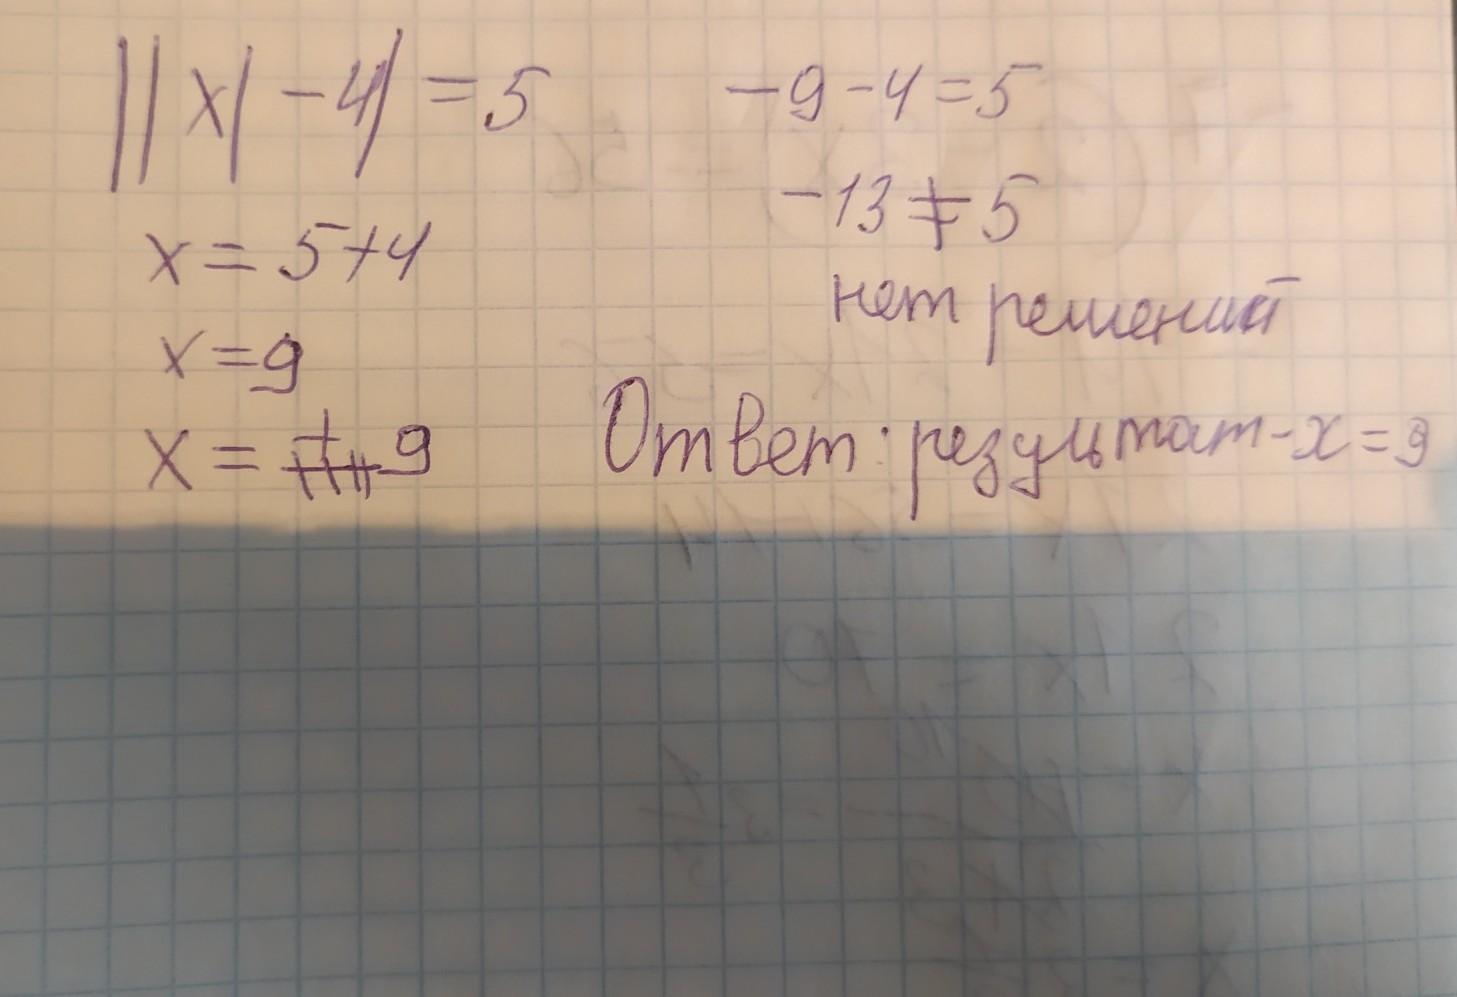 ||x|-4|=5
x=5+4
x=9
x=9
-9-4=5
-13≠5
нет решений
Ответ: результат-x=9